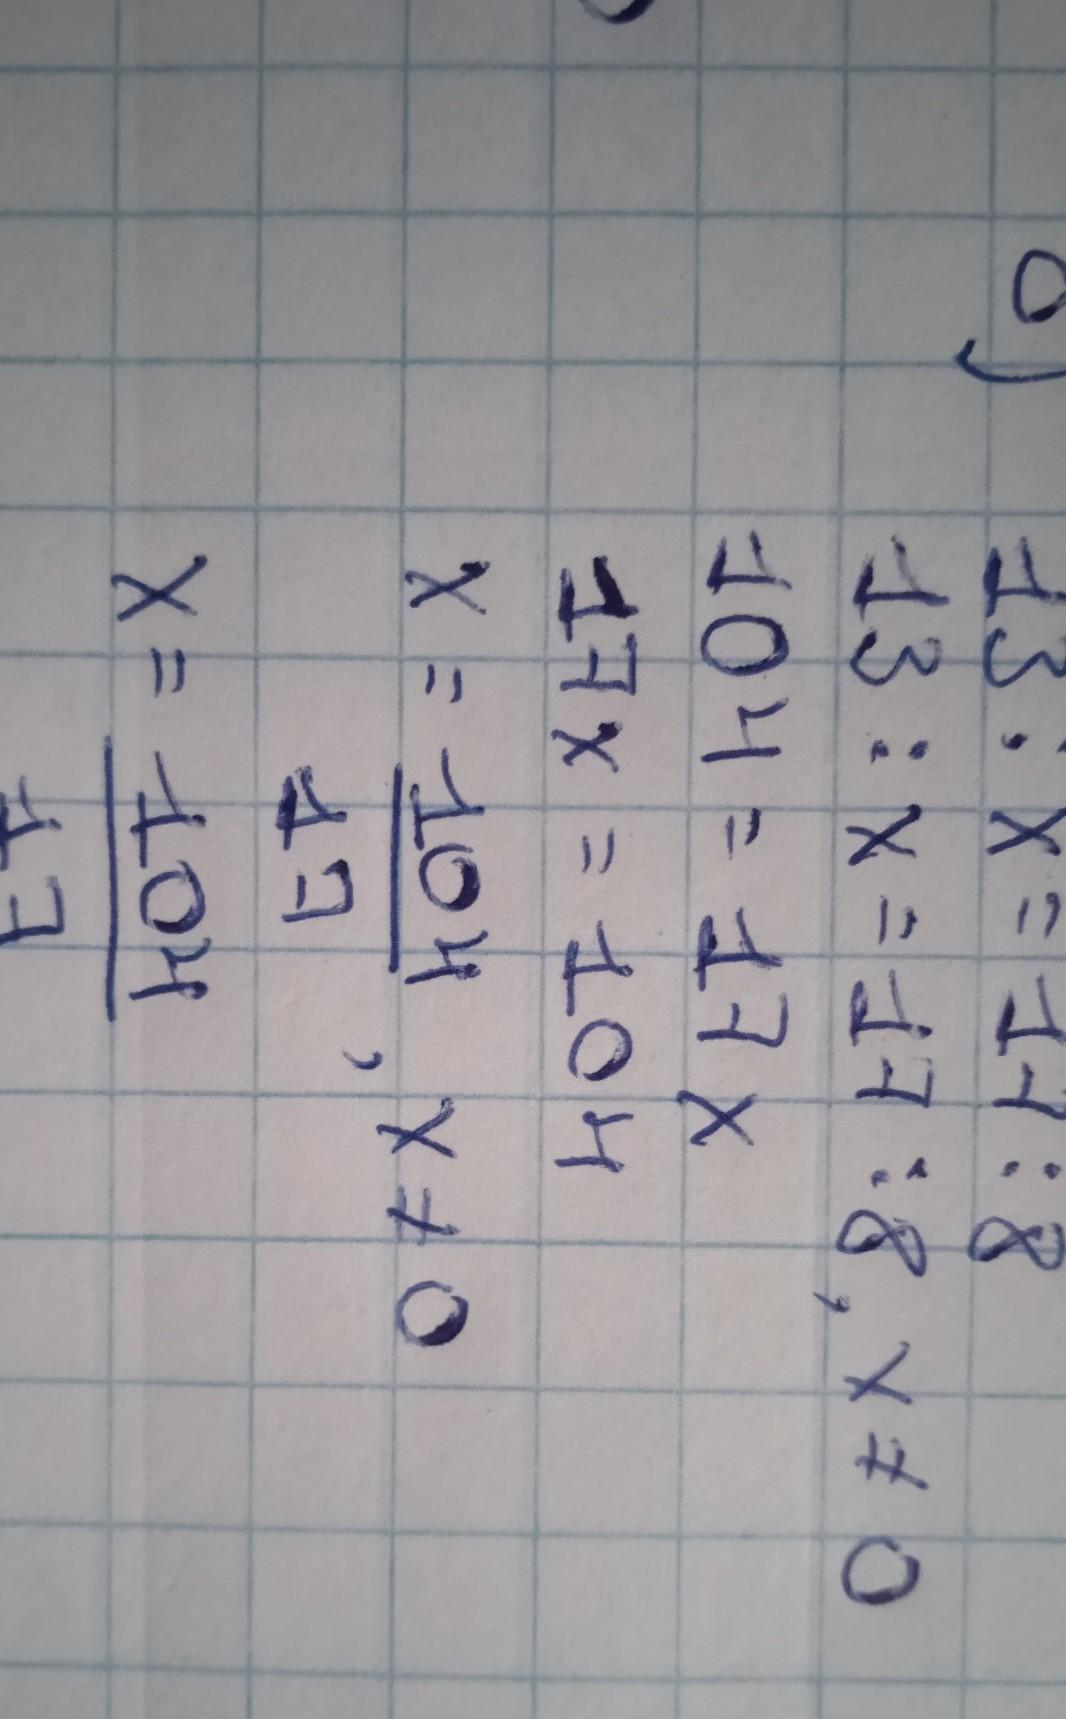 a) 13 : x = 17 : 8
13 : x = 17 : 8, x ≠ 0
104 = 17x
17x = 104
x = 104/17, x ≠ 0
x = 104/17